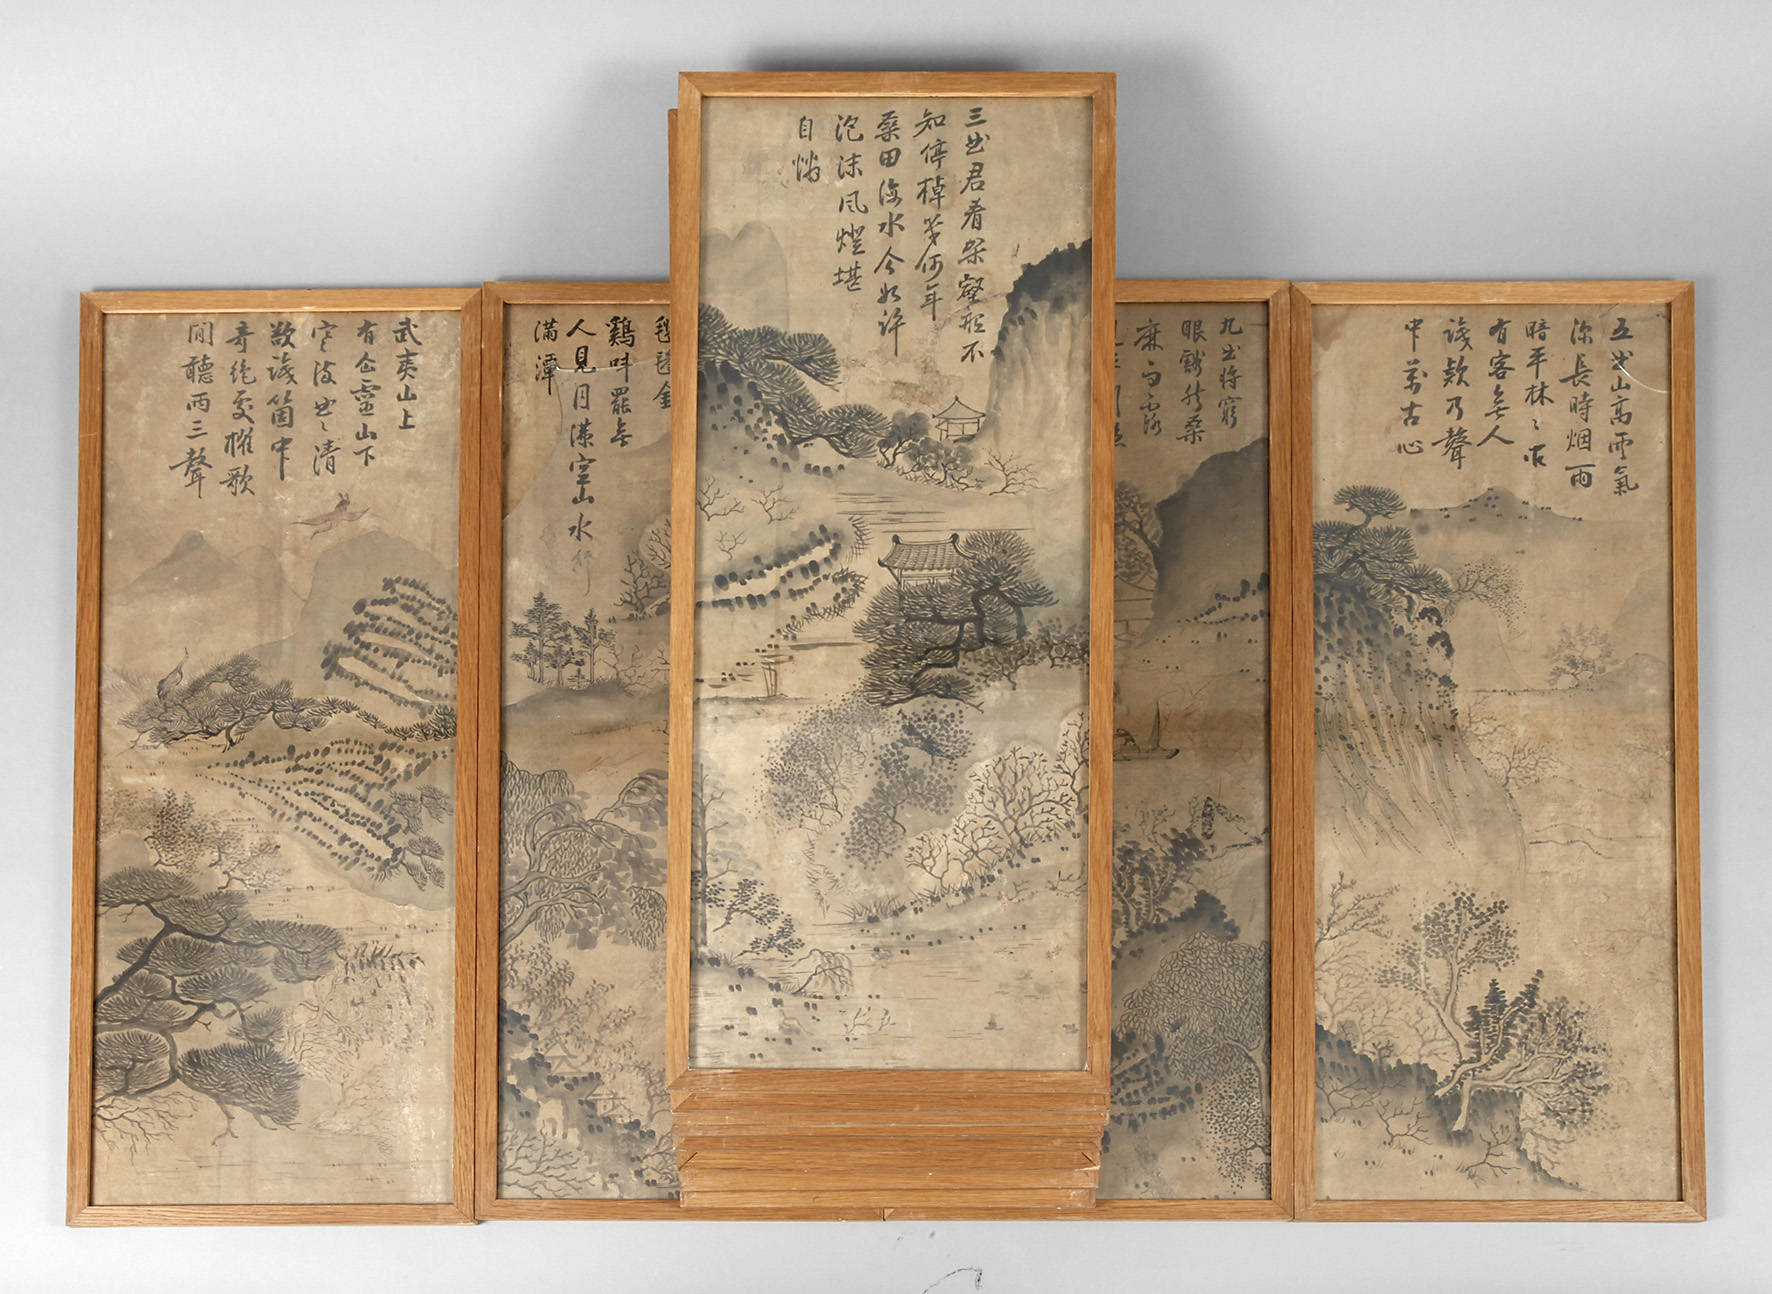 武夷山上
有仚靈山下
寒流曲〻清
欲識箇中
奇絶處櫂歌
閒聽兩三聲
㲯毿金
鷄叫罷無
人見月滿空山水
滿潭
三曲君看架壑船不
知停棹幾何年
桑田海水今如許
泡沫風燈堪
自憐
九曲將窮
眼豁然桑
麻雨露
五曲山高雲氣
深長時烟雨
暗平林〻間
有客無人
識欸乃聲
中萬古心